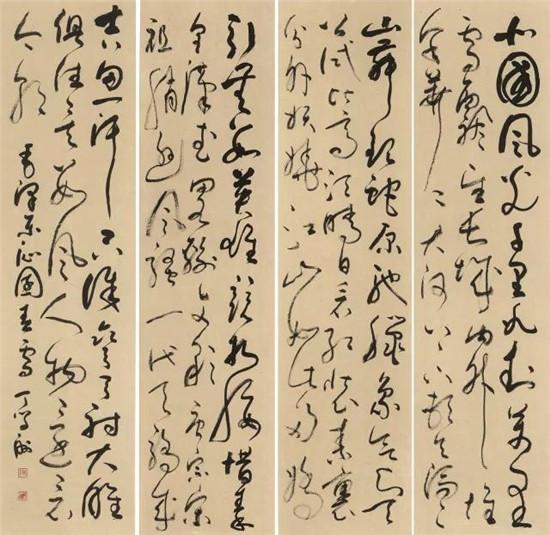 北國風光千里冰封萬里
雪飄望長城內外惟
余莽〻大河上下頓失滔〻
山舞銀蛇原馳蠟象欲與天
公試比高須晴日看紅裝素裹
分外妖嬈江山如此多嬌
引無數英雄競折腰惜秦
皇漢武略輸文采唐宗宋
祖稍遜風騷一代天驕成
吉思汗只識彎弓射大雕
俱往矣數風流人物還看
今朝 毛澤東沁園春雪